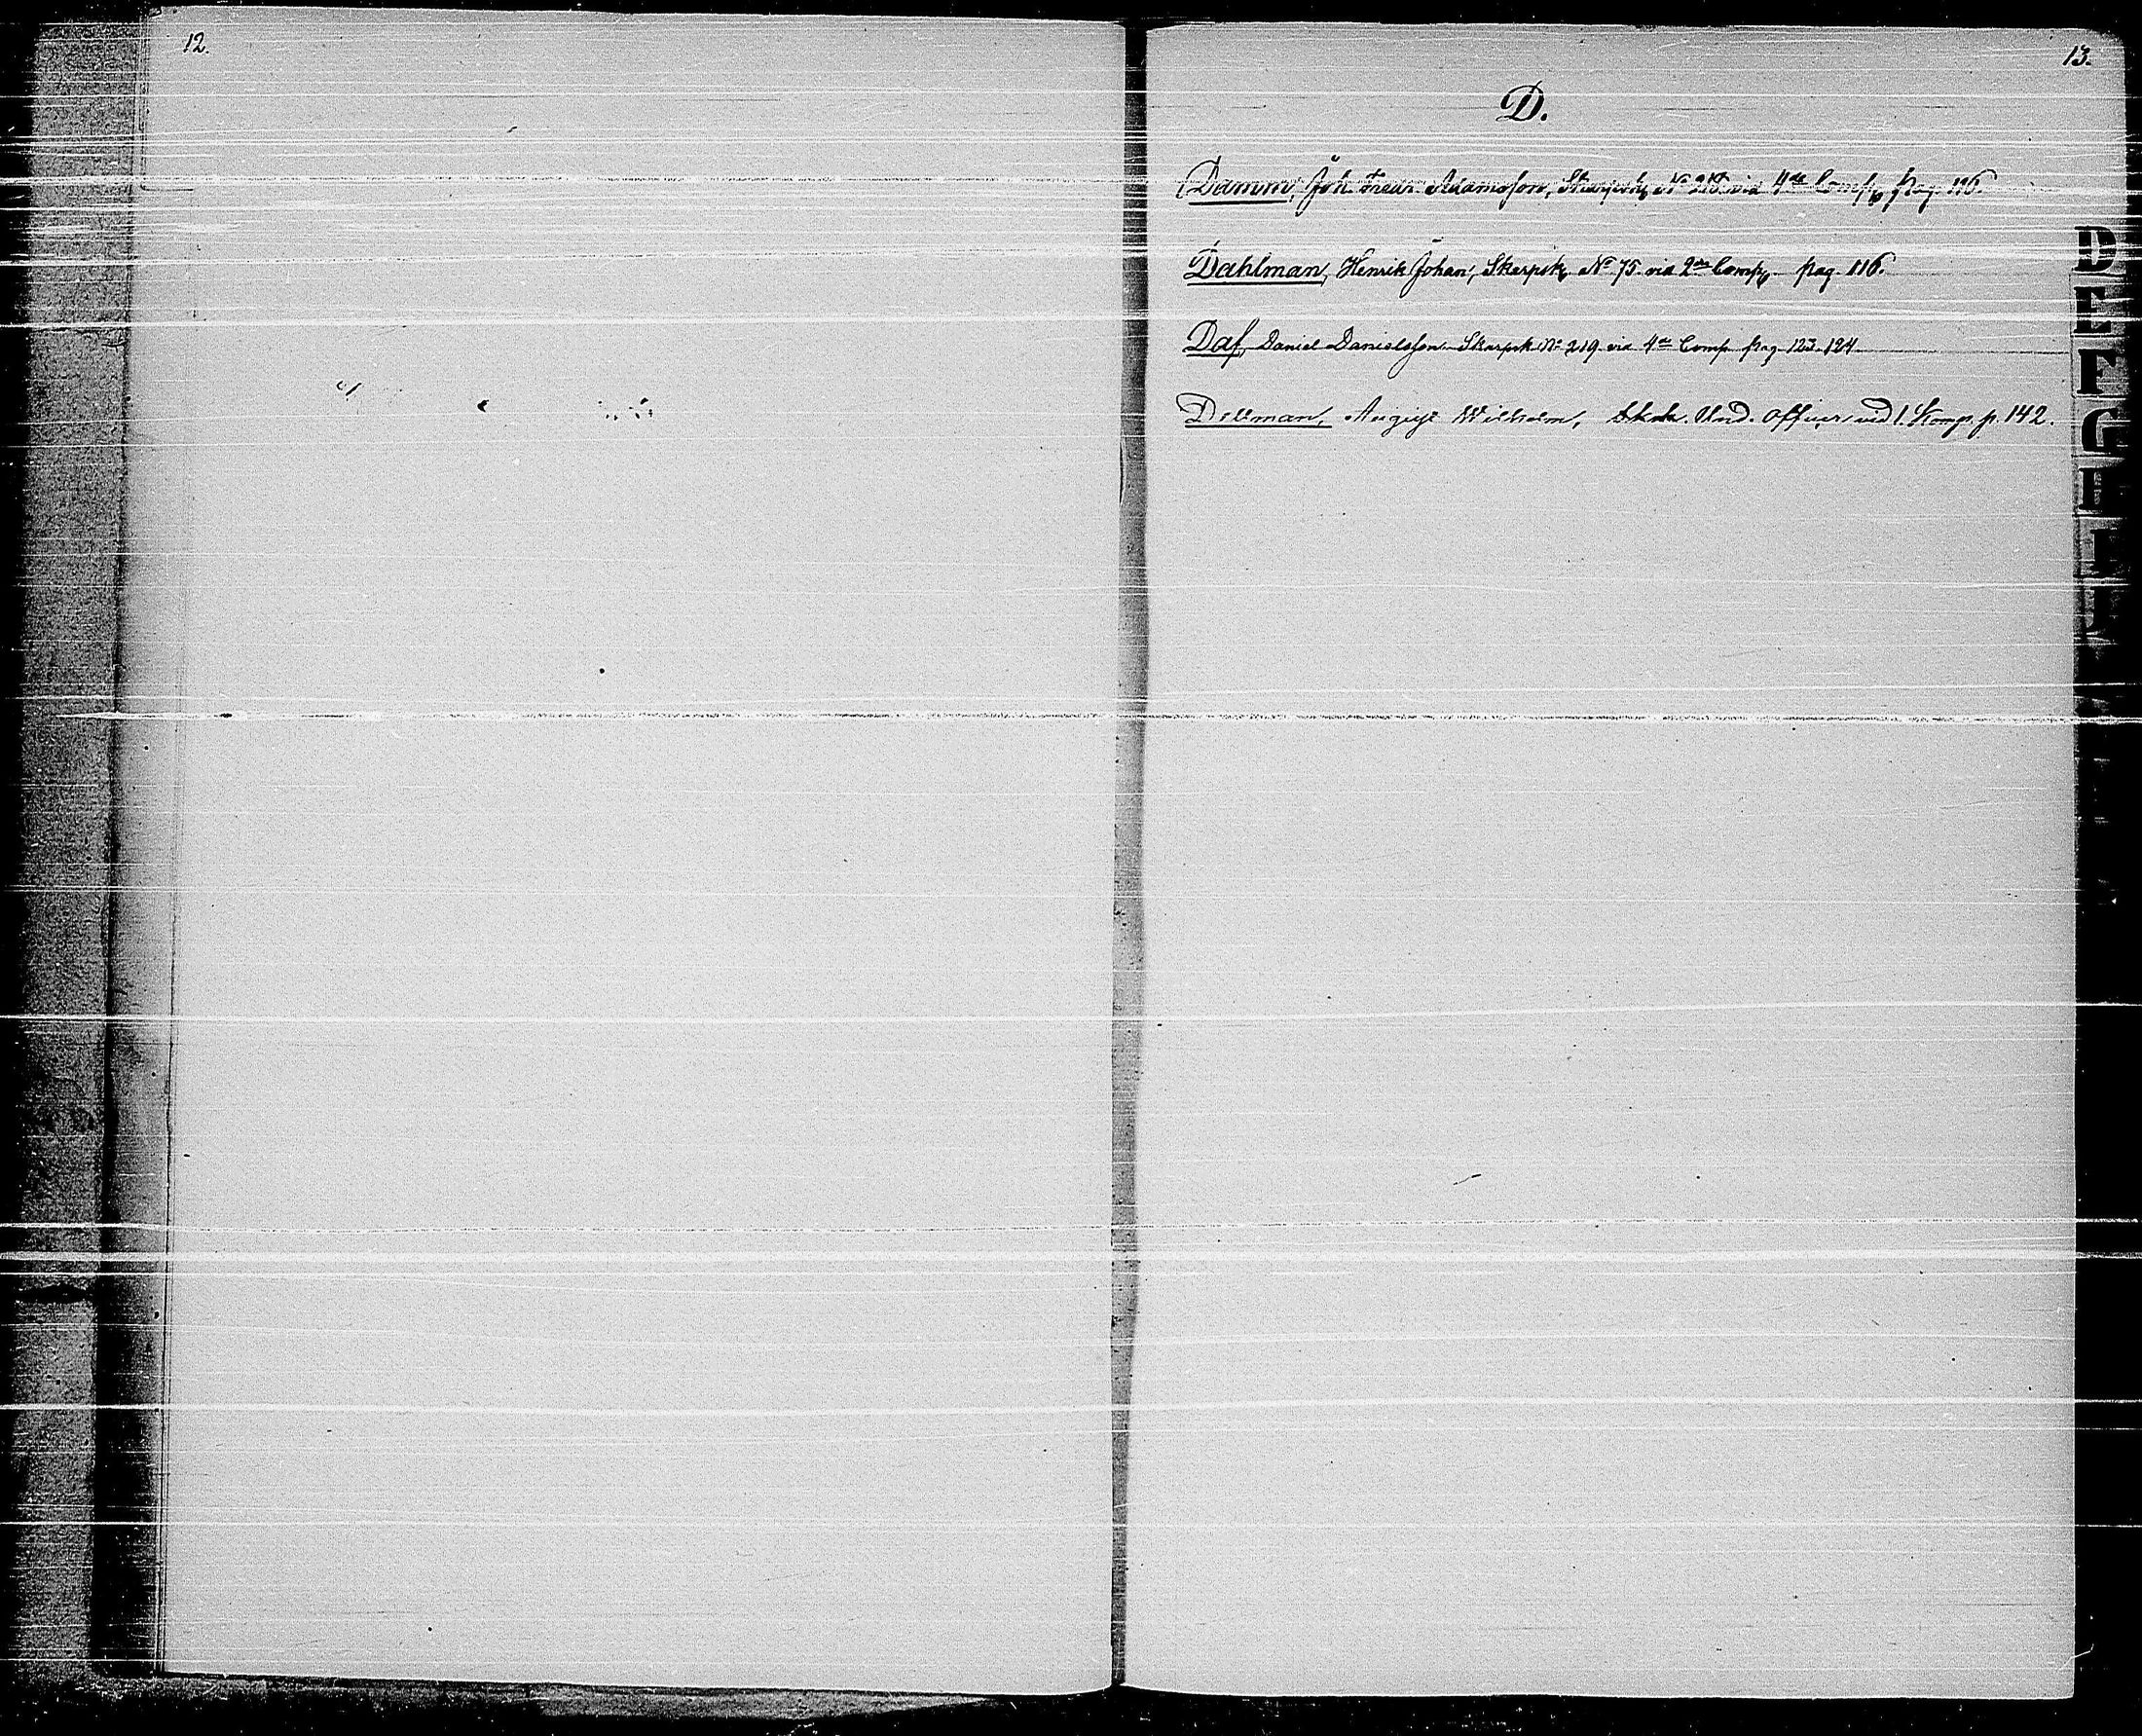 12.
13.
D.
Damm, Joh. Fredr. Adamsson, Skarpsk. No 218 vid 4de Comp. pag. 116.
Dahlman, Henrik Johan, Skarpsk. No 75 vid 2dra Comp. pag. 116.
Daf, Daniel Danielsson Skarpsk No 219 vid 4de Comp. pag. 123. 124
Dillman, August Wilhelm, Und. Officer vid 1. Komp. p. 142.
D
E
F
G